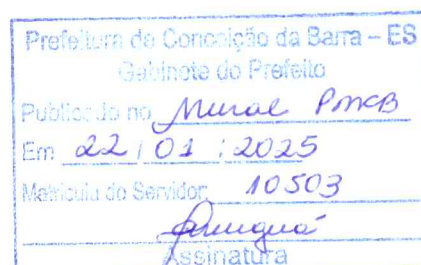 Prefeitura de Conceição da Barra – ES
Gabinete do Prefeito
Publicado no Mural PMCB
Em 22 / 01 / 2025
Matrícula do Servidor: 10503
Assinatura